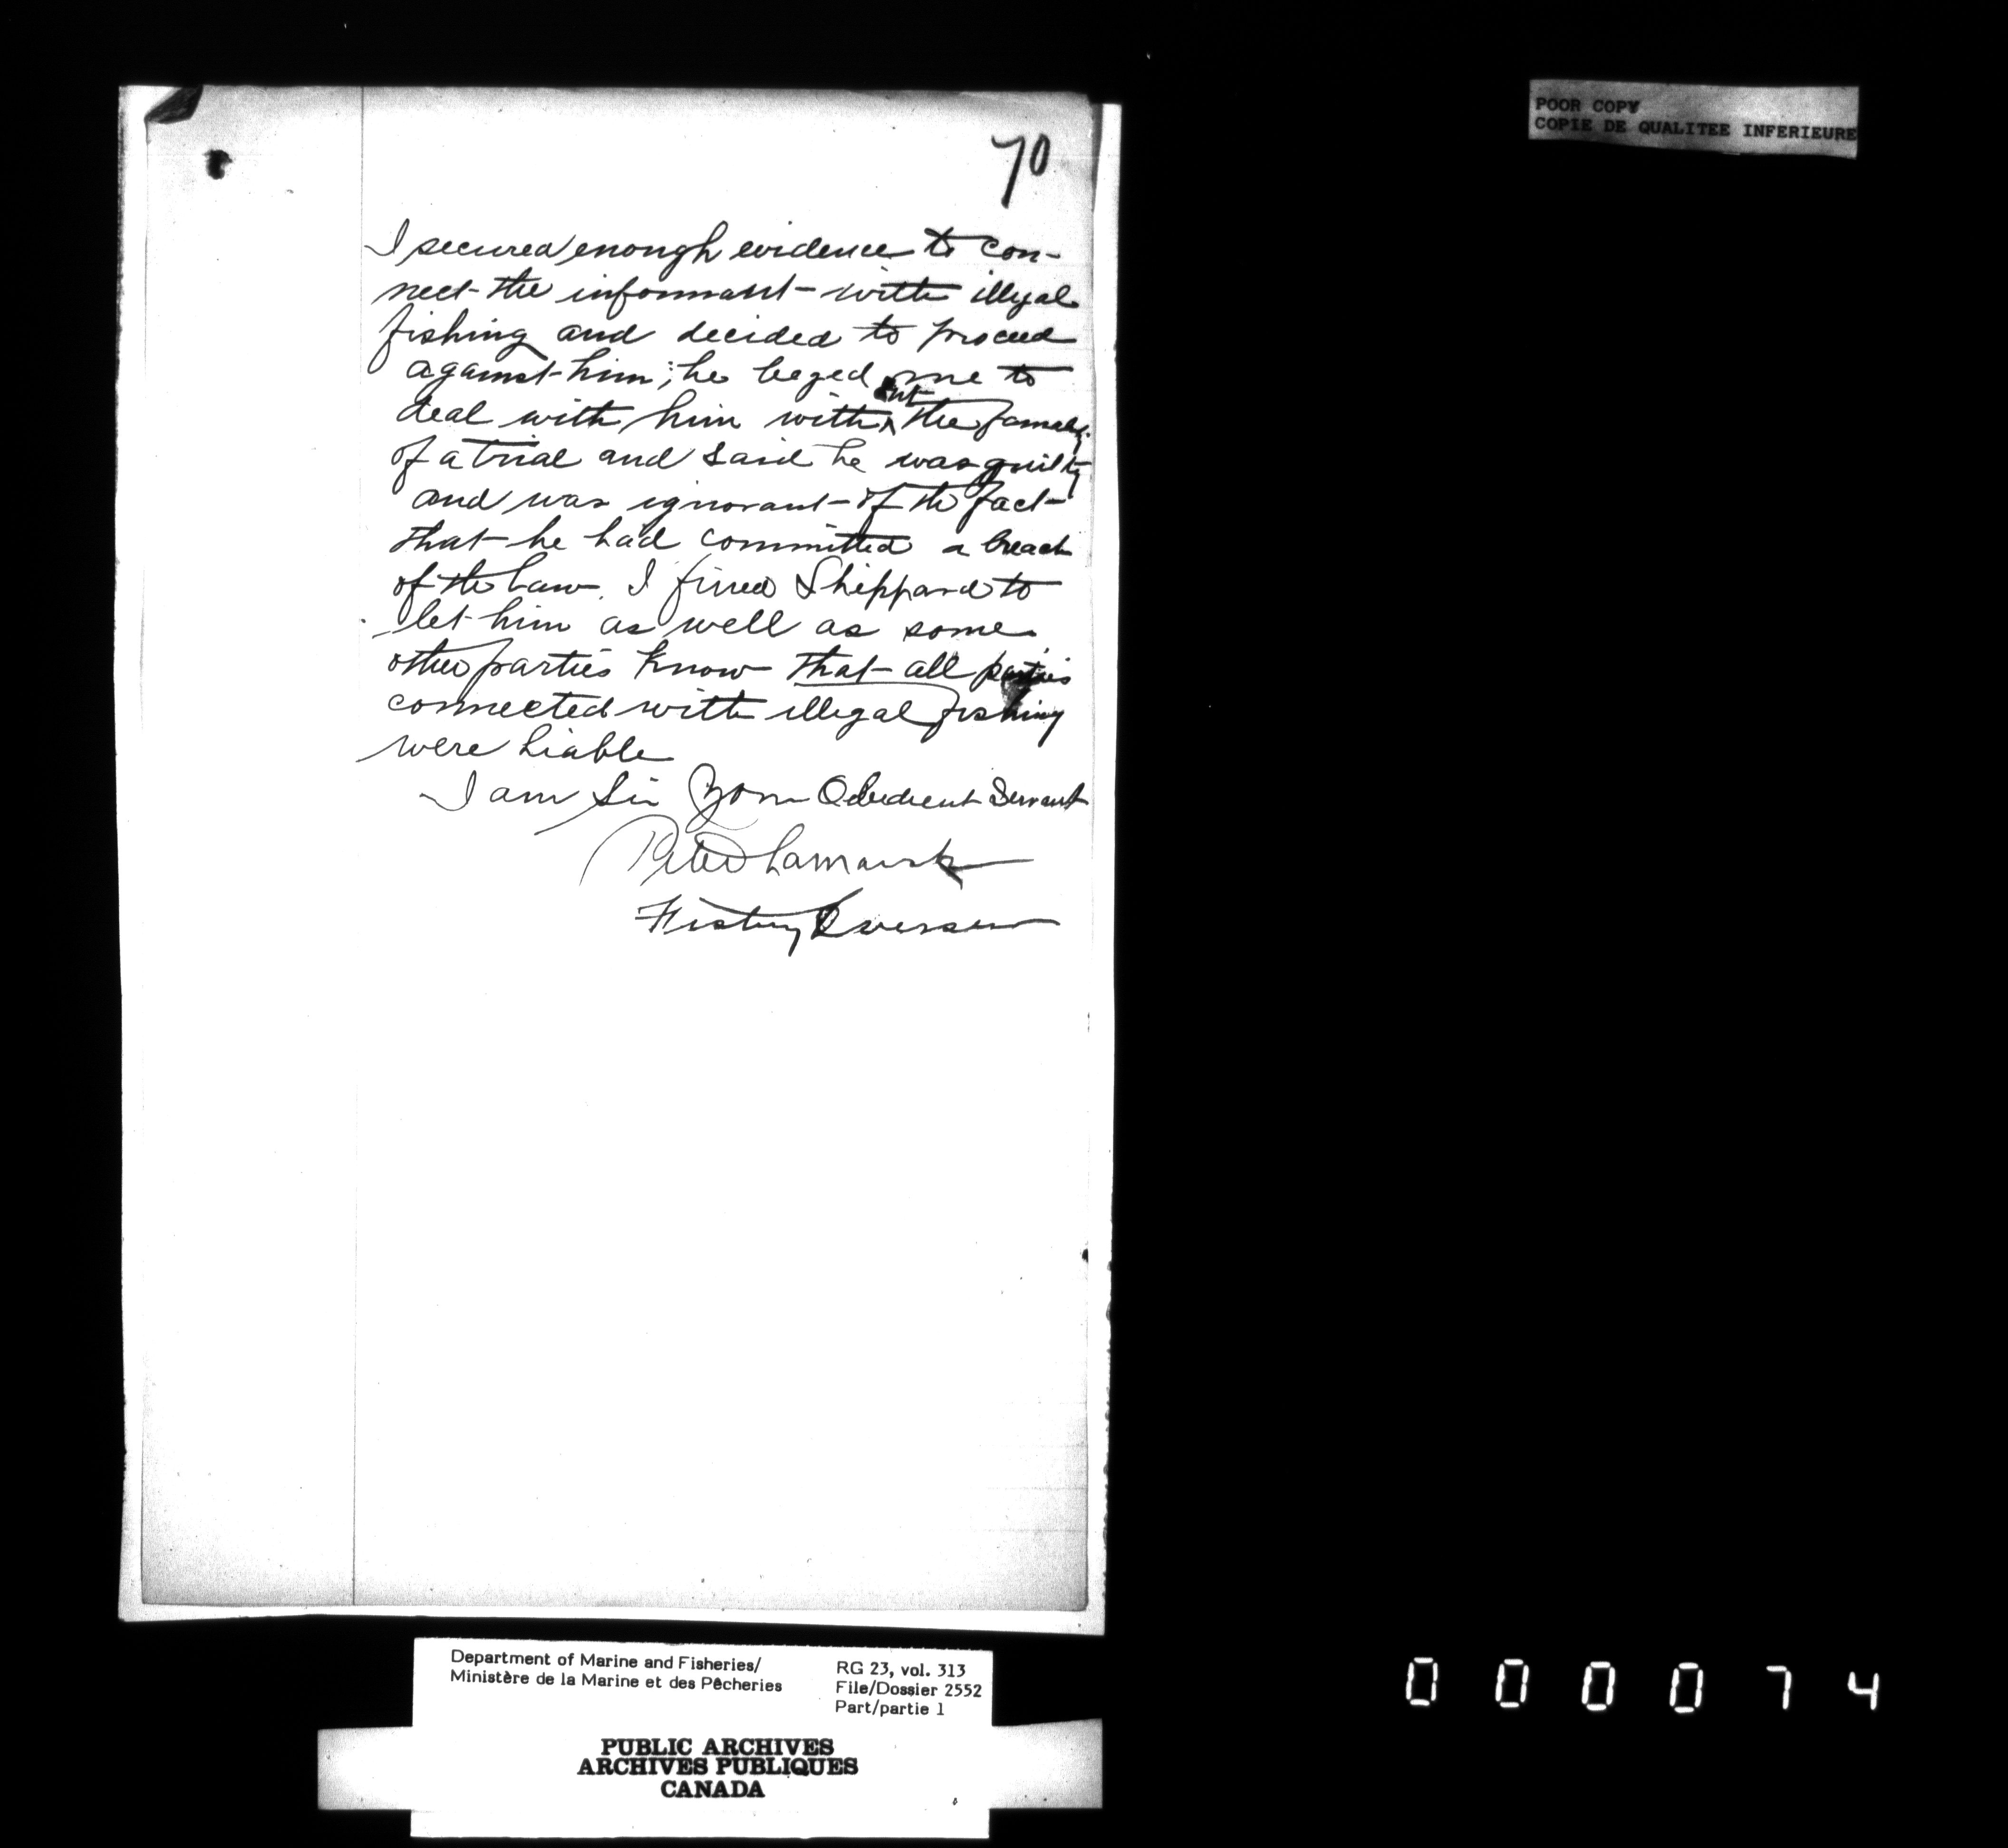 70
POOR COPY
COPIE DE QUALITEE INFERIEURE
I secured enough evidence to con-
nect the informant with illegal
fishing and decided to proceed
against him; he beged me to
deal with him without the
of a trial and said he was guilty
and was ignorant of the fact
that he had committed a breach
of the law. I fined Sheppard to
let him as well as some
other parties know that all parties
connected with illegal fishing
were liable
I am Sir Your Obedient Servant
Peter
Fishery Overseer
Department of Marine and Fisheries/
Ministère de la Marine et des Pêcheries
RG 23, vol. 313
File/Dossier 2552
Part/partie 1
PUBLIC ARCHIVES
ARCHIVES PUBLIQUES
CANADA
000074